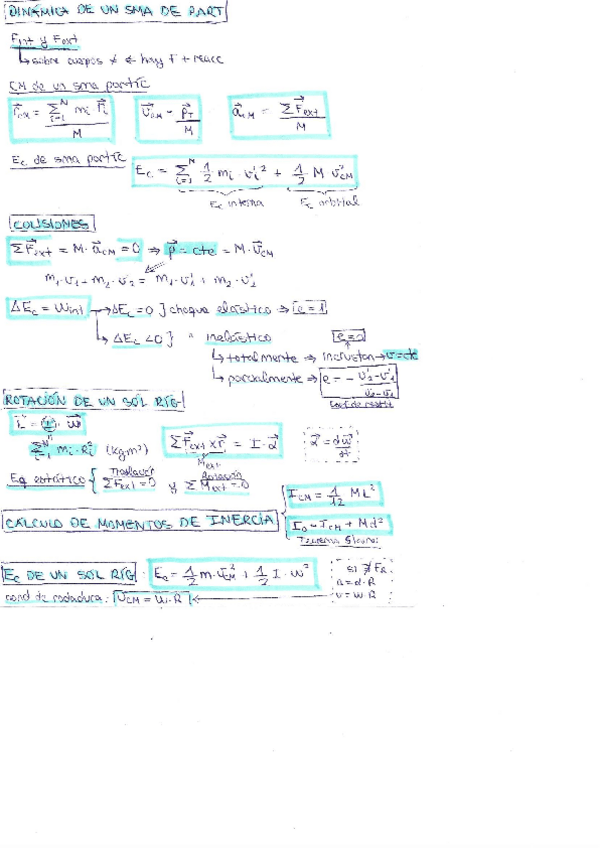 DINÁMICA DE UN SMA DE PART
Fint y Fext
↳ sobre cuerpos ≠ ← hay F + reacc
CM de un sma partíc
r⃗CM = Σᵢ₌₁ᴺ mᵢ r⃗ᵢ / M   v⃗CM = p⃗T / M   a⃗CM = ΣF⃗ext / M
Ec de sma partíc   Ec = Σᵢ₌₁ᴺ 1/2 mᵢ · vᵢ'² + 1/2 M v²CM
Ec interna   Ec orbital
COLISIONES
ΣF⃗ext = M · a⃗CM = 0 ⇒ p⃗ = cte = M · v⃗CM
m₁·v₁ + m₂·v₂ = m₁·v₁' + m₂·v₂'
ΔEc = Wint → ΔEc = 0 } choque elástico ⇒ e = 1
↳ ΔEc < 0 } " inelástico   e = 0
↳ totalmente ⇒ incrustan → v = cte
↳ parcialmente ⇒ e = - v₂' - v₁' / v₂ - v₁
ROTACIÓN DE UN SÓL RÍG
L⃗ = I · w⃗
Σᵢ₌₁ᴺ mᵢ · Rᵢ² (kg·m²)   ΣF⃗ext × r⃗ = I · α⃗   α⃗ = dw⃗/dt
Mext
Eq estático { Traslación ΣFext = 0 y rotación ΣMext = 0
ICM = 1/12 ML²
CÁLCULO DE MOMENTOS DE INERCIA   I₀ = ICM + Md²
Teorema Steiner
Ec DE UN SOL RÍG   Ec = 1/2 m · v²CM + 1/2 I · w²   si ∄ FR
cond de rodadura: VCM = W · R ←   a = α · R
v = w · R